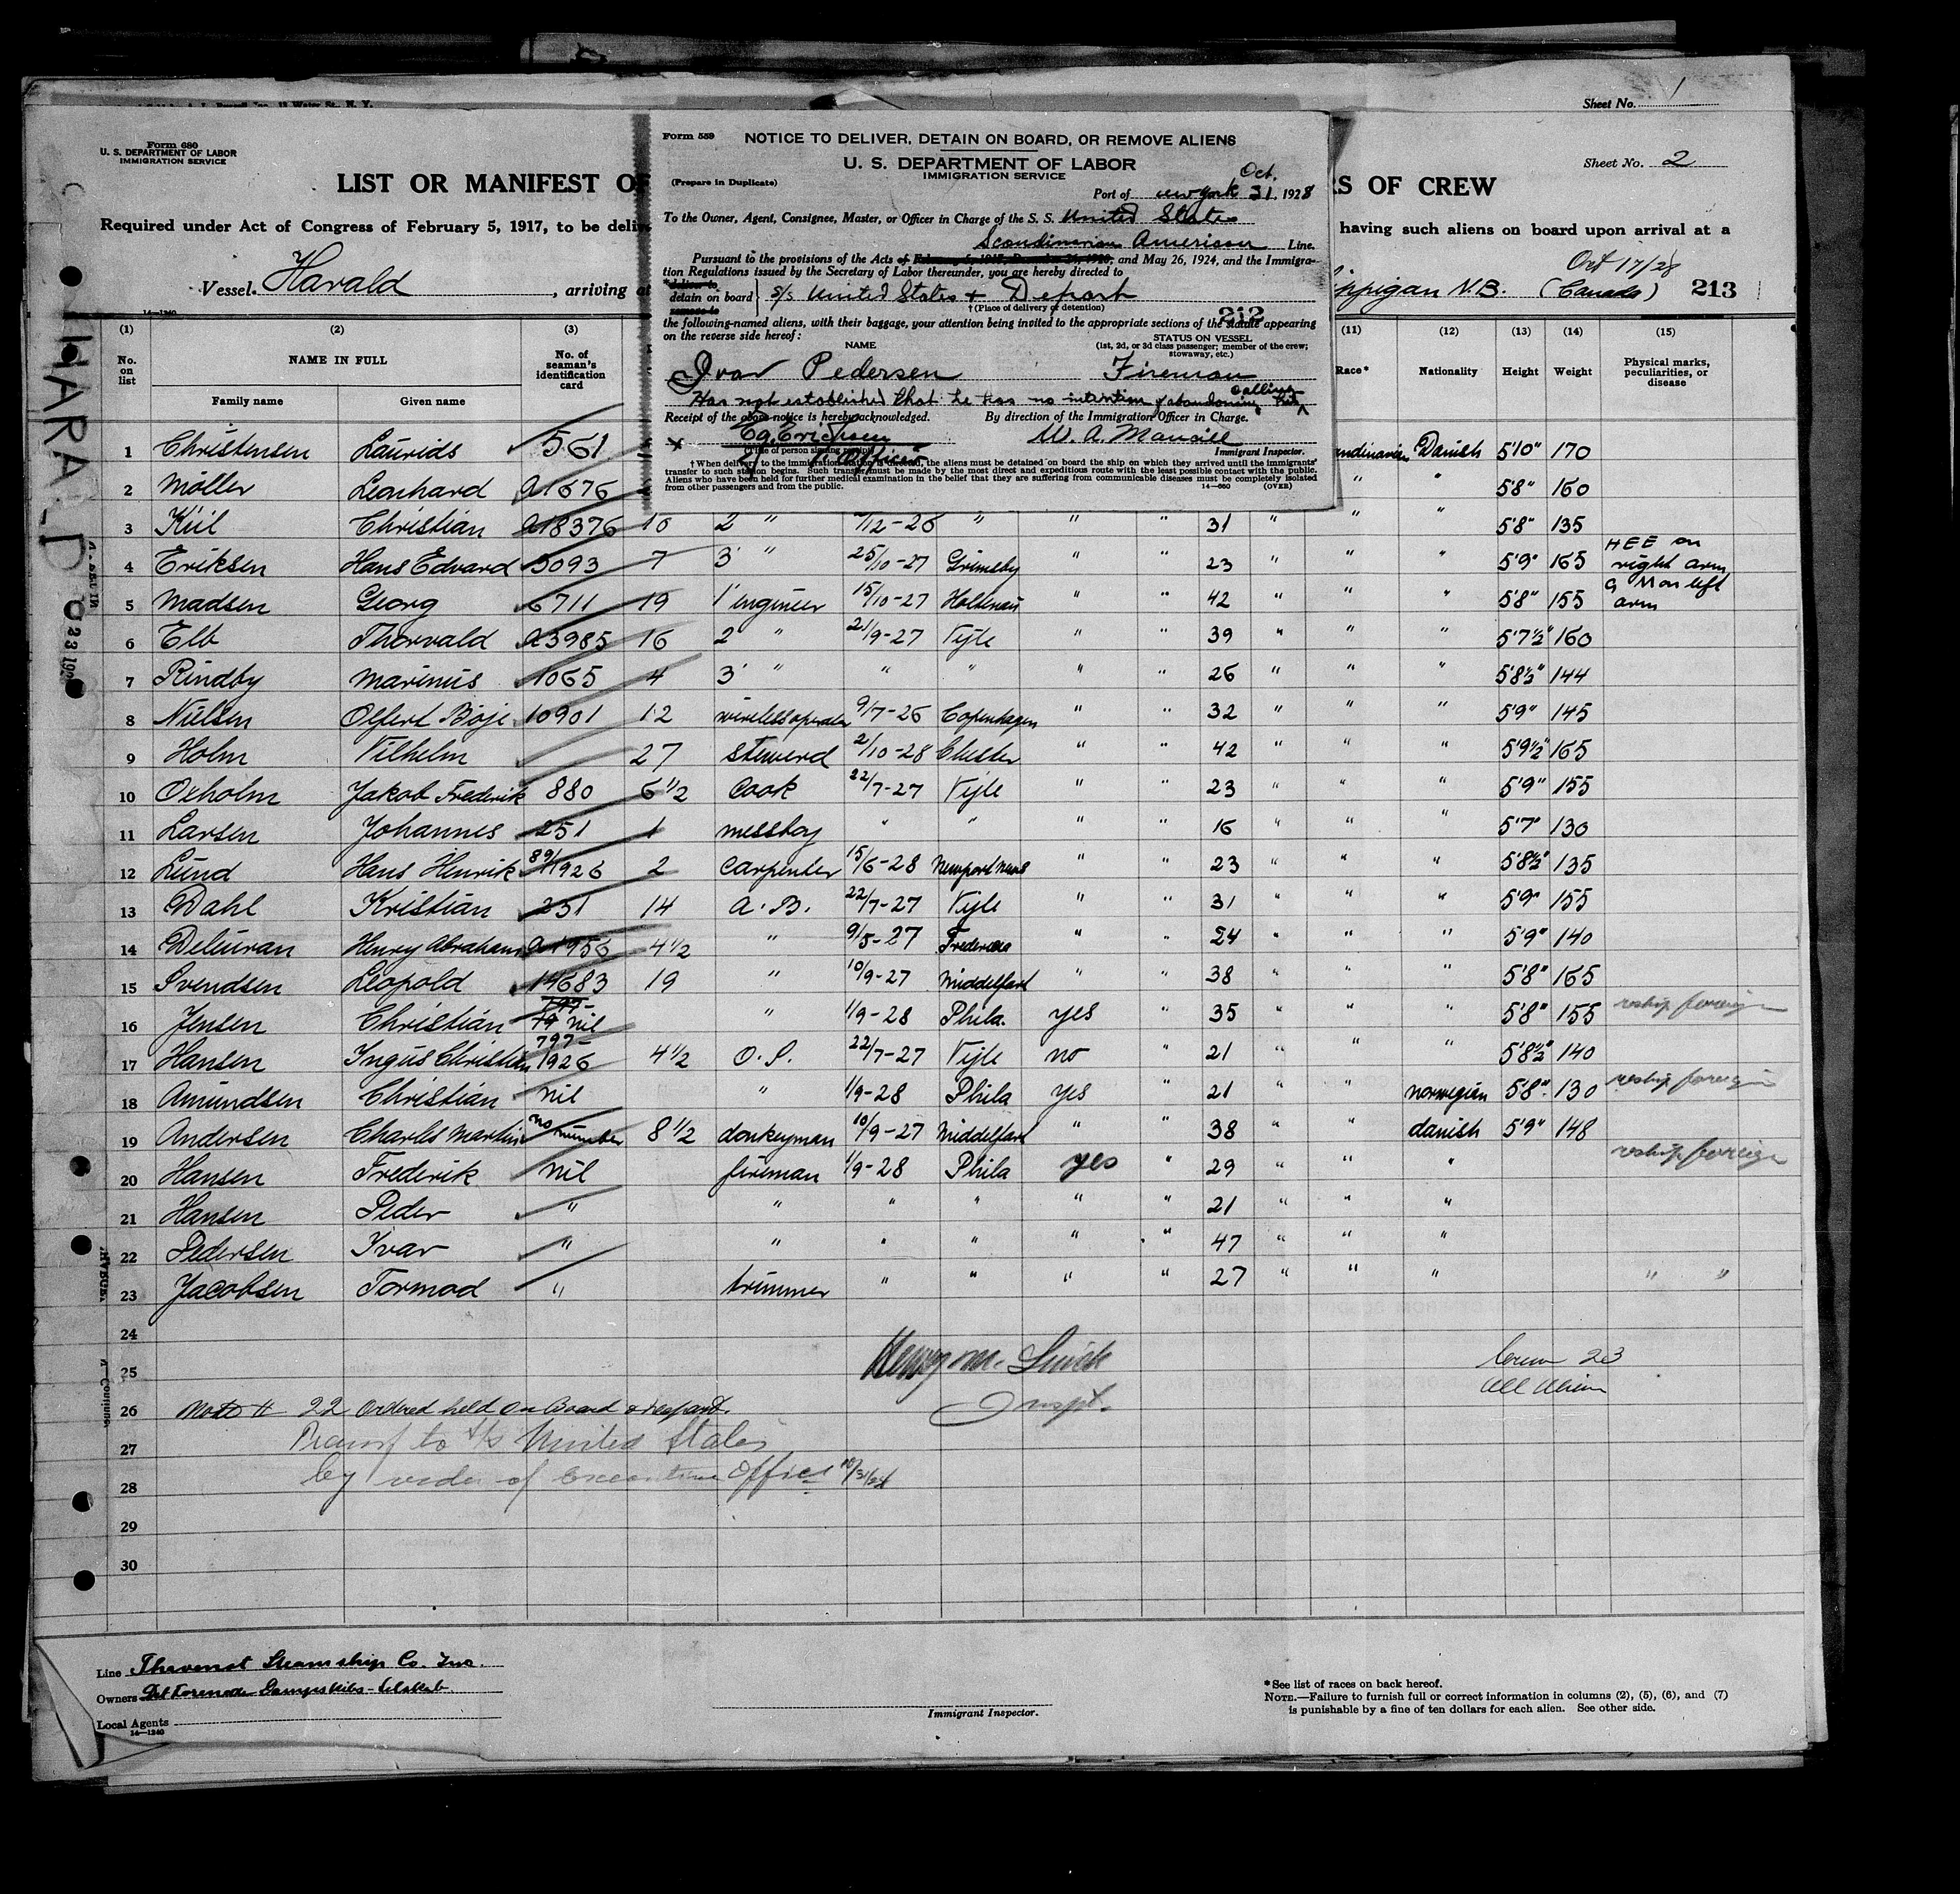 Sheet No. 1
Form 680
U. S. DEPARTMENT OF LABOR
IMMIGRATION SERVICE
Sheet No. 2
LIST OR MANIFEST OF
RS OF CREW
Required under Act of Congress of February 5, 1917, to be
having such aliens on board upon arrival at a
Vessel Harald, arriving at
Oct 17/28
N.B. (Canada) 213
Form 559
NOTICE TO DELIVER, DETAIN ON BOARD, OR REMOVE ALIENS
U. S. DEPARTMENT OF LABOR
IMMIGRATION SERVICE
(Prepare in Duplicate)
Port of New York Oct. 31, 1928
To the Owner, Agent, Consignee, Master, or Officer in Charge of the S. S. United States
Scandinavian American Line.
Pursuant to the provisions of the Acts of February 5, 1917, December 26, 1920, and May 26, 1924, and the Immigra-
tion Regulations issued by the Secretary of Labor thereunder, you are hereby directed to
*deliver to
detain on board } S/S United States & Depart
remove to
†(Place of delivery or detention)
212
the following-named aliens, with their baggage, your attention being invited to the appropriate sections of the statute appearing
on the reverse side hereof:
NAME STATUS ON VESSEL
(1st, 2d, or 3d class passenger; member of the crew;
stowaway, etc.)
Ivar Pedersen Fireman
Has not established that he has no intention of abandoning his calling
Receipt of the above notice is hereby acknowledged. By direction of the Immigration Officer in Charge.
x Eg. Erichsen W. A. Mansill
(Title of person signing receipt) Immigrant Inspector.
Officer
† When delivery to the immigration station is directed, the aliens must be detained on board the ship on which they arrived until the immigrants'
transfer to such station begins. Such transfer must be made by the most direct and expeditious route with the least possible contact with the public.
Aliens who have been held for further medical examination in the belief that they are suffering from communicable diseases must be completely isolated
from other passengers and from the public. 14—660 (OVER)
HARALD
(1) (2) (3) (11) (12) (13) (14) (15)
No. on list NAME IN FULL No. of seaman's identification card Race* Nationality Height Weight Physical marks, peculiarities, or disease
Family name Given name
1 Christensen Laurids 561 Danish 5'10" 170
2 Möller Leonhard a1676 " " 5'8" 160
3 Kiil Christian a18376 16 2 " 7/12-26 " " " 31 " " " 5'8" 135
4 Eriksen Hans Edvard 5093 7 3 " 25/10-27 Grimsby " " 23 " " " 5'9" 165 HEE on right arm
5 Madsen Georg 6711 19 1 engineer 15/10-27 Holtenau " " 42 " " " 5'8" 155 G M on left arm
6 Elb Thorvald a3985 16 2 " 21/9-27 Vejle " " 39 " " " 5'7½" 160
7 Rindby Marinus 1065 4 3 " " " " " 26 " " " 5'8½" 144
8 Nielsen Olfert Böje 10901 12 wireless operator 9/7-26 Copenhagen " " 32 " " " 5'9" 145
9 Holm Vilhelm 27 steward 2/10-28 Chester " " 42 " " " 5'9½" 165
10 Oxholm Jakob Frederik 880 6 1/2 Cook 22/7-27 Vejle " " 23 " " " 5'9" 155
11 Larsen Johannes 251 1 messboy " " " " 16 " " " 5'7" 130
12 Lund Hans Henrik 89/1926 2 carpenter 15/6-28 Newport News " " 23 " " " 5'8½" 135
13 Dahl Kristian 231 14 A. B. 22/7-27 Vejle " " 31 " " " 5'9" 155
14 Deluran Henry Abraham a1956 4 1/2 " 9/5-27 Fredericia " " 24 " " " 5'9" 140
15 Svendsen Leopold 14683 19 " 10/9-27 Middelfart " " 38 " " " 5'8" 165
16 Jensen Christian nil " 1/9-28 Phila. yes " 35 " " " 5'8" 155 reship foreign
17 Hansen Ingus Christian 797-1926 4 1/2 O. S. 22/7-27 Vejle no " 21 " " " 5'8½" 140
18 Amundsen Christian nil " 1/9-28 Phila yes " 21 " " norwegian 5'8" 130 reship foreign
19 Andersen Charles Martin no number 8 1/2 donkeyman 10/9-27 Middelfart " " 38 " " danish 5'9" 148
20 Hansen Frederik nil fireman 1/9-28 Phila yes " 29 " " " reship foreign
21 Hansen Peder " " " " " " 21 " " "
22 Pedersen Ivar " " " " " " 47 " " "
23 Jacobsen Tormod " trimmer " " " " 27 " " " " "
24
25
26
27
28
29
30
Henry M. Smith
Inspt.
Crew 23
All Alien
Note # 22 ordered held on Board & depart.
Transf to S/S United States
by order of Executive Office 10/31/28
Line Thevenet Steamship Co. Inc.
Owners Det Forenede Dampskibs-Selskab
Local Agents
14—1240
Immigrant Inspector.
*See list of races on back hereof.
NOTE.—Failure to furnish full or correct information in columns (2), (5), (6), and (7)
is punishable by a fine of ten dollars for each alien. See other side.